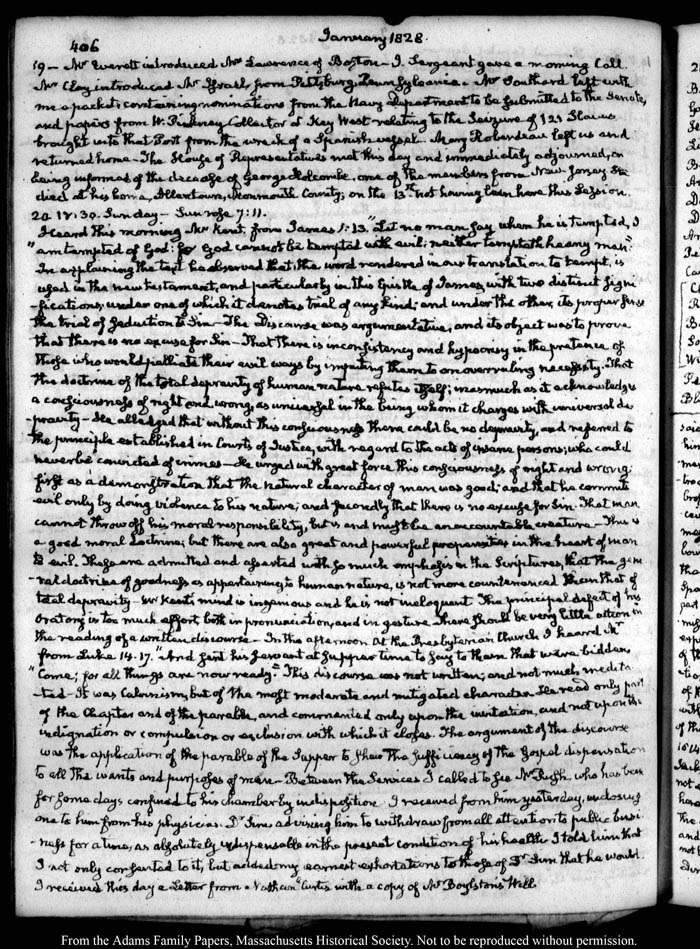 406
January 1828.
19 — Mr Everett introduced Mr Lawrence of Boston — J. Sergeant gave a morning Call.
Mr Clay introduced Mr Israel, from Pittsburg, Pennsylvania — Mr Southard left with
me a packet containing nominations from the Navy Department to be submitted to the Senate,
and papers from W. Pinkney Collector at Key West relating to the seizure of 121 Slaves
brought into that Port from the wreck of a Spanish vessel. Mary Roberdeau left us and
returned home — The House of Representatives met this day and immediately adjourned, on
being informed of the decease of George Holcombe, one of the members from New-Jersey. He
died at his home, Allentown, Monmouth County, on the 13th not having been here this Session.
20. IV:30. Sunday. Sun rose 7:11.
Heard this morning Mr Kent, from James 1:13. "Let no man say when he is tempted, I
"am tempted of God: for God cannot be tempted with evil; neither tempteth he any man."
In explaining the text he observed that the word rendered in our translation to tempt, is
used in the new testament, and particularly in this Epistle of James, with two distinct signi
-fications, under one of which it denotes trial of any kind; and under the other, its proper sense
the trial of seduction to Sin — The Discourse was argumentative, and its object was to prove
that there is no excuse for Sin — That there is inconsistency and hypocrisy in the pretence of
those who would palliate their evil ways by imputing them to an overruling necessity. That
the doctrine of the total depravity of human nature refutes itself; inasmuch as it acknowledges
a consciousness of right and wrong, as universal in the being whom it charges with universal de
-pravity — He alledged that without this consciousness there could be no depravity, and referred to
the principle established in Courts of Justice, with regard to the acts of insane persons; who could
never be convicted of crimes — He urged with great force this consciousness of right and wrong;
first as a demonstration that the natural character of man was good; and that he commits
evil only by doing violence to his nature; and secondly that there is no excuse for Sin. That man
cannot throw off his moral responsibility, but is and must be an accountable creature — This is
a good moral doctrine; but there are also great and powerful propensities in the heart of man
to evil. These are admitted and asserted with so much emphasis in the Scriptures, that the gene
-ral doctrine of goodness as appertaining to human nature, is not more countenanced than that of
total depravity — Mr Kent's mind is ingenious and he is not ineloquent. The principal defect of his
Oratory is too much effort both in pronunciation, and in gesture. There should be very little action in
the reading of a written discourse — In the afternoon at the Presbyterian Church I heard Mr
from Luke 14. 17. "And sent his servant at supper time to say to them that were bidden
"Come; for all things are now ready." This discourse was not written; and not much medita
-ted — It was Calvinism, but of the most moderate and mitigated character. He read only part
of the Chapter and of the parable, and commented only upon the invitation, and not upon the
indignation or compulsion or exclusion with which it closes. The argument of the discourse
was the application of the parable of the Supper to shew the sufficiency of the Gospel dispensation
to all the wants and purposes of man — Between the Services I called to see Mr Rush, who has been
for some days confined to his chamber by indisposition. I received from him yesterday, inclosing
one to him from his physician Dr Sim advising him to withdraw from all attention to public busi
-ness for a time, as absolutely indispensable in the present condition of his health. I told him that
I not only consented to it, but added my earnest exhortations to those of Dr Sim that he would.
I received this day a Letter from Curtis with a copy of Mr Boylston's Will.
From the Adams Family Papers, Massachusetts Historical Society. Not to be reproduced without permission.